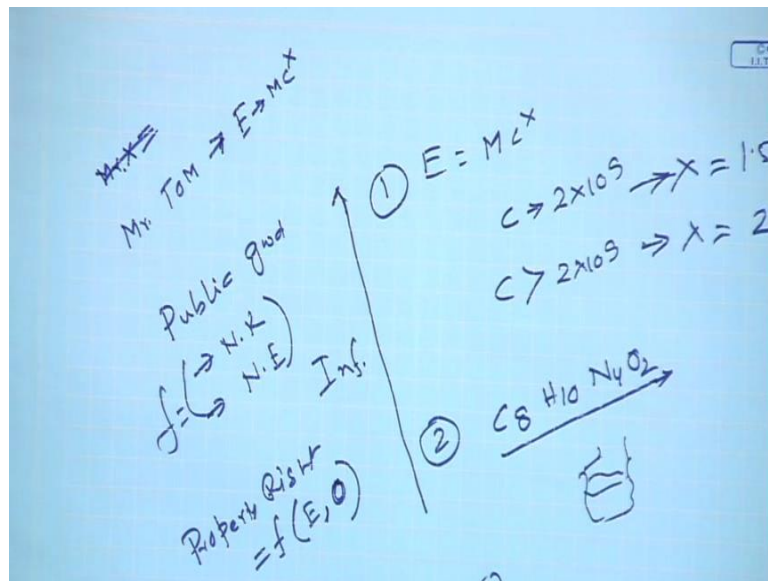 Mr. X =
Mr. TOM → E → MC^X
Public good
f = ( → N.R
→ N.E )
Inf.
Property Right
= f (E, O)
① E = MC^X
C → 2×10^5 → X = 1.5
C > 2×10^5 → X = 2
② C8 H10 N4 O2